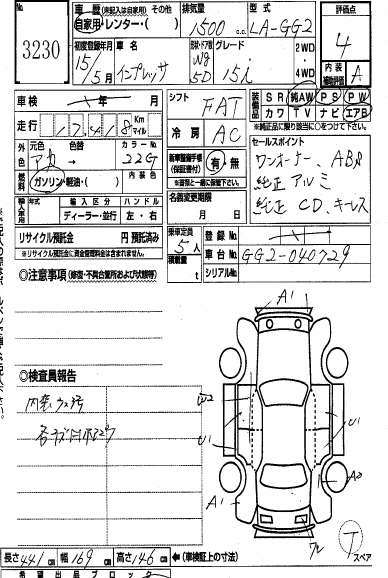 3230
車歴(車名記入は自家用) その他
自家用・レンター・( )
排気量 1500 c.c.
型式 LA-GG2
評価点 4
内装補助評価 A
初度登録年月 15/5月
車名 インプレッサ
形状・ドア数 Wg 5D
グレード 15i
2WD
4WD
車検 年 月
走行 17,418 Km マイル
シフト FAT
冷房 AC
装備品 SR 純AW PS PW
カワ TV ナビ エアB
※純正品に限り該当に○をつけて下さい
外色 元色 アカ 色替 カラーNo. 22G
燃料 ガソリン・軽油・( ) 内装色
新車整備手帳(保証書付) 有・無
※書類と一緒に保管下さい。
セールスポイント
ワンオーナー、ABS
純正アルミ
純正CD、キーレス
輸入車用 年式 輸入区分 ハンドル
ディーラー・並行 左・右
名義変更期限 月 日
リサイクル預託金 円 預託済み
※リサイクル預託金に資金管理料金は含まれません。
乗車定員 5人
積載量 t
登録No.
車台No. GG2-040729
シリアルNo.
◎注意事項(修復・不具合箇所および状態等)
◎検査員報告
内装ウスヨゴレ
A1
W2
U1
U1
A2
A1
スペア
長さ 441 cm 幅 169 cm 高さ 146 cm ←(車検証上の寸法)
希望出品ブロック